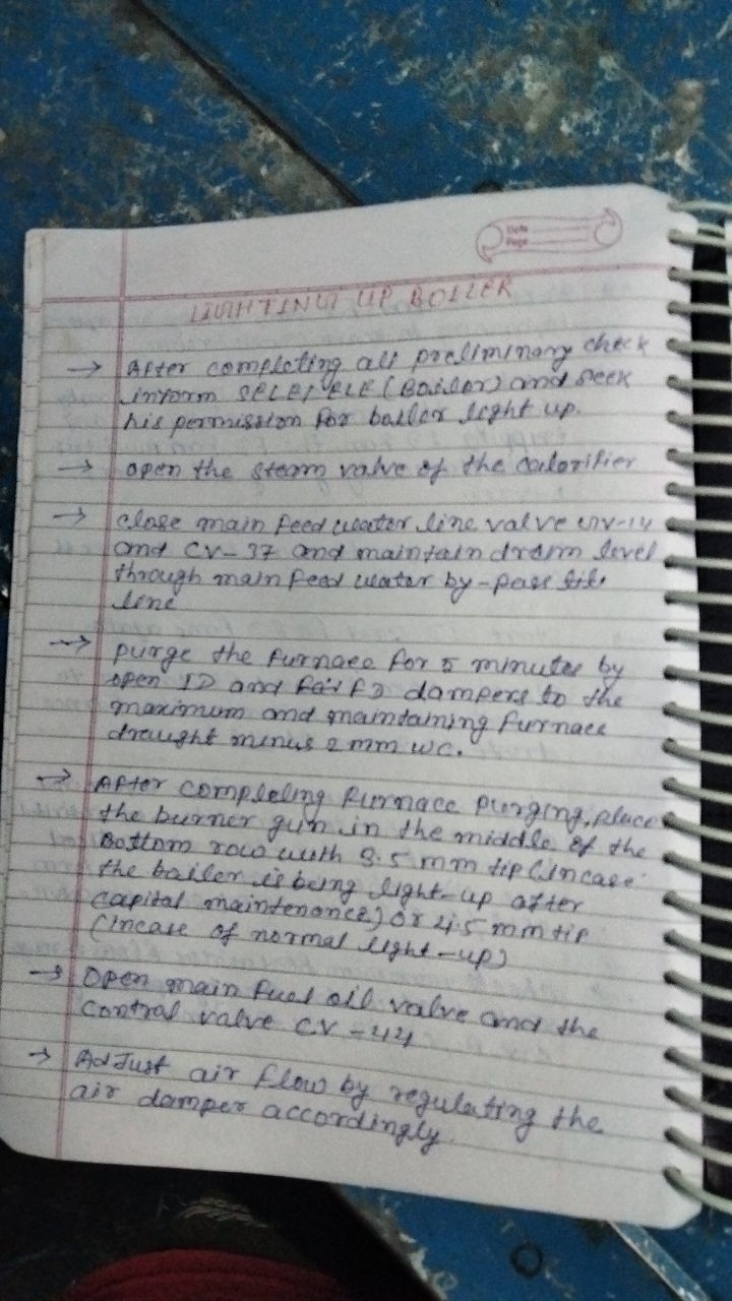 Date
Page
LIGHTING UP BOILER
→ After completing all preliminary check
inform (Boiler) and seek
his permission for boiler light up.
→ open the steam valve of the calorifier
→ close main feed water line valve
and CV-37 and maintain drum level
through main feed water by-pass
line
→ purge the furnace for 5 minutes by
open ID and dampers to the
maximum and maintaining furnace
draught minus 2 mm wc.
→ After completing furnace purging, place
the burner gun in the middle of the
Bottom row with 3.5 mm tip (incase
the boiler is being light-up after
capital maintenance) or 4.5 mm tip
(incase of normal light-up)
→ Open main fuel oil valve and the
control valve CV-44
→ AdJust air flow by regulating the
air damper accordingly